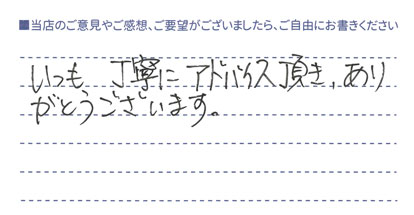 ■当店のご意見やご感想、ご要望がございましたら、ご自由にお書きください
いつも、丁寧にアドバイス頂き、あり
がとうございます。